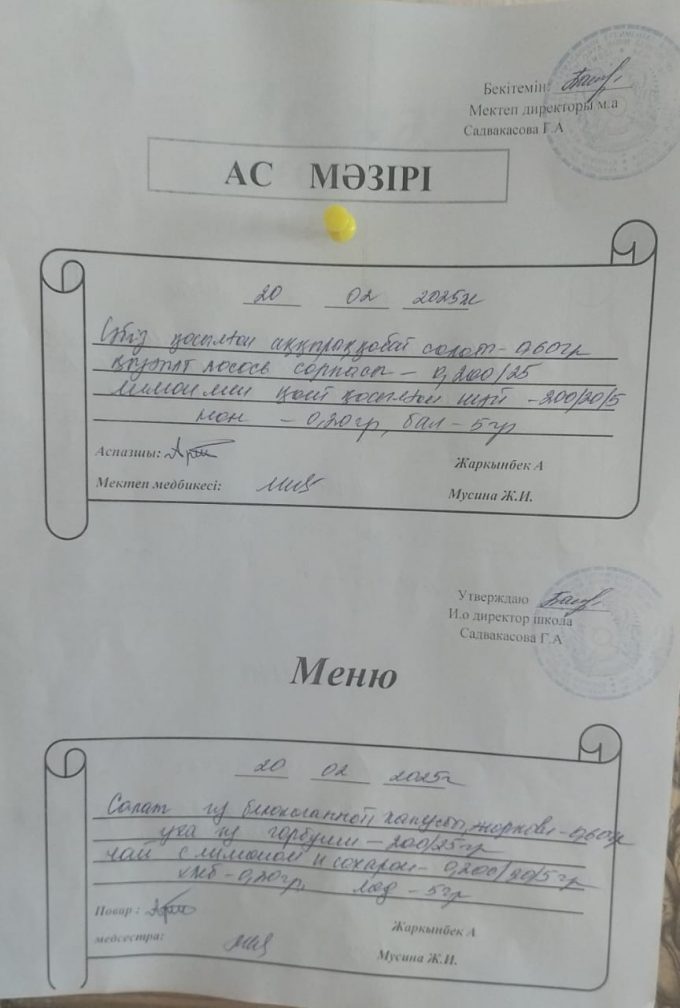 Бекітемін
Мектеп директоры м.а
Садвакасова Г.А
АС МӘЗІРІ
20 02 2025ж
Сәбіз қосылған аққырыққабат салат - 0,60гр
лосось сорпасы - 0,200/25
лимон мен қант қосылған шай - 200/20/5
нан - 0,20гр, бал - 5гр
Аспазшы:
Жаркынбек А
Мектеп медбикесі:
Мусина Ж.И.
Утверждаю
И.о директор школа
Садвакасова Г.А
Меню
20 02 2025г
Салат из белокочанной капусты, моркови - 0,60гр
уха из горбуши - 200/25гр
чай с лимоном и сахаром - 0,200/20/5гр
хлеб - 0,20гр, мёд - 5гр
Повар :
Жаркынбек А
медсестра:
Мусина Ж.И.